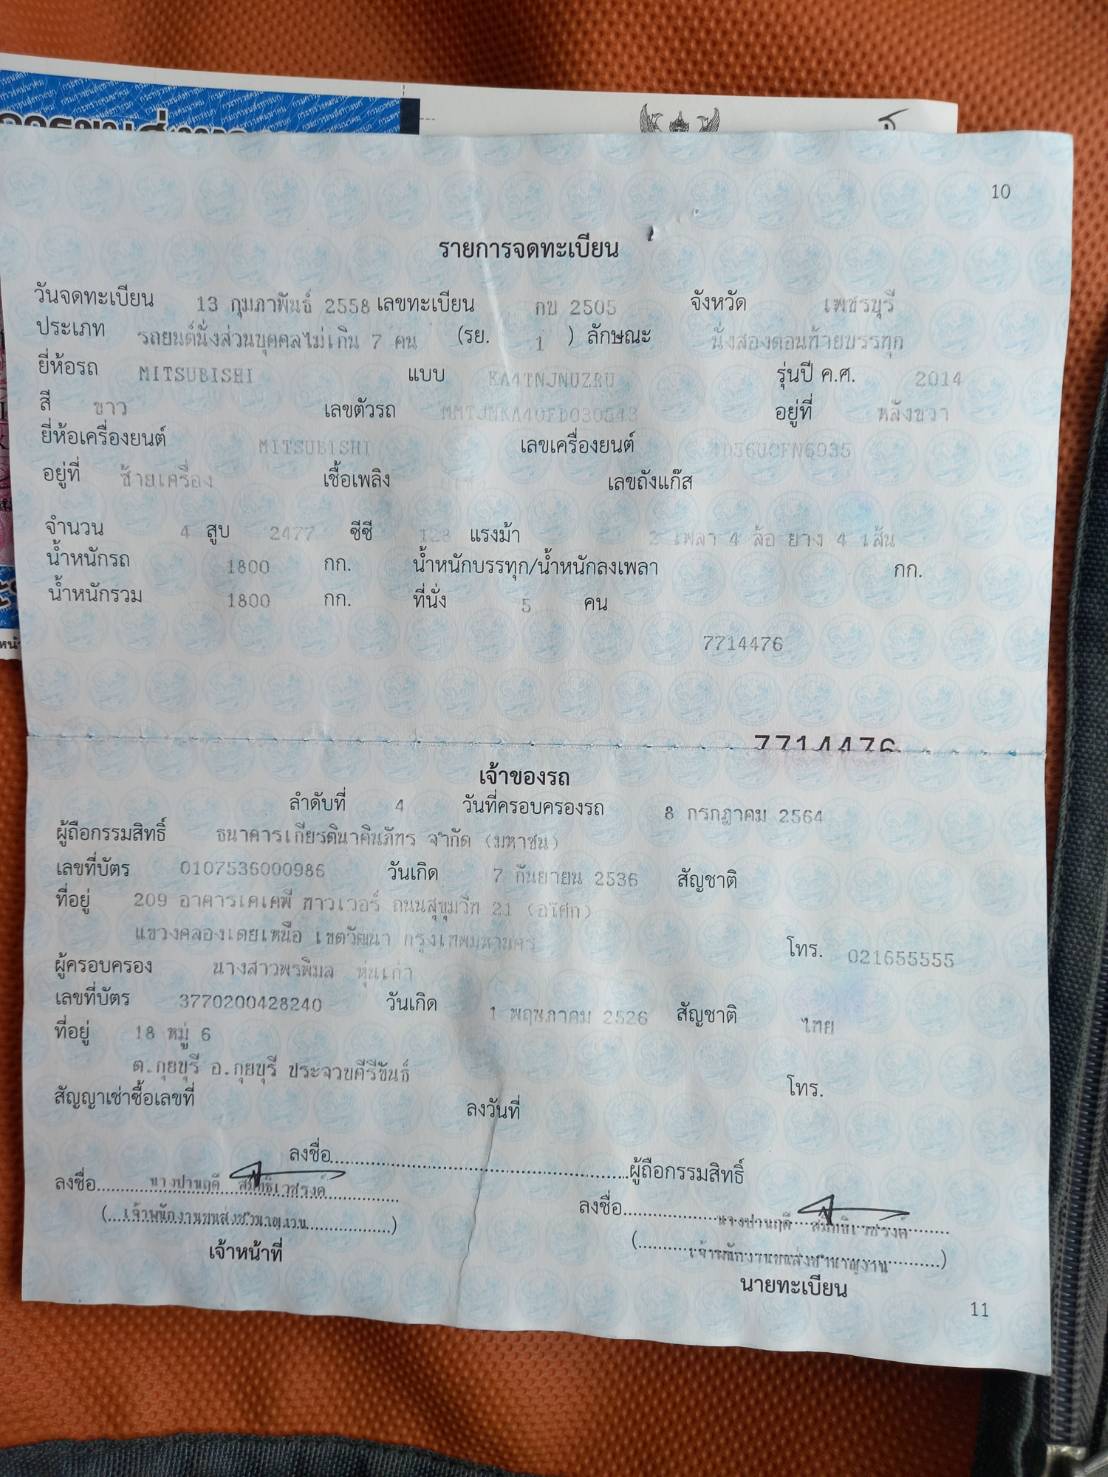 10
รายการจดทะเบียน
วันจดทะเบียน 13 กุมภาพันธ์ 2558 เลขทะเบียน กข 2505 จังหวัด เพชรบุรี
ประเภท รถยนต์นั่งส่วนบุคคลไม่เกิน 7 คน (รย. 1 ) ลักษณะ นั่งสองตอนท้ายบรรทุก
ยี่ห้อรถ MITSUBISHI แบบ KA4TNJNUZRU รุ่นปี ค.ศ. 2014
สี ขาว เลขตัวรถ อยู่ที่ หลังขวา
ยี่ห้อเครื่องยนต์ MITSUBISHI เลขเครื่องยนต์
อยู่ที่ ซ้ายเครื่อง เชื้อเพลิง เลขถังแก๊ส
จำนวน 4 สูบ 2477 ซีซี 128 แรงม้า 2 เพลา 4 ล้อ ยาง 4 เส้น
น้ำหนักรถ 1800 กก. น้ำหนักบรรทุก/น้ำหนักลงเพลา กก.
น้ำหนักรวม 1800 กก. ที่นั่ง 5 คน
7714476
7714476
เจ้าของรถ
ลำดับที่ 4 วันที่ครอบครองรถ 8 กรกฎาคม 2564
ผู้ถือกรรมสิทธิ์ ธนาคารเกียรตินาคินภัทร จำกัด (มหาชน)
เลขที่บัตร 0107536000986 วันเกิด 7 กันยายน 2536 สัญชาติ
ที่อยู่ 209 อาคารเคเคพี ทาวเวอร์ ถนนสุขุมวิท 21 (อโศก)
แขวงคลองเตยเหนือ เขตวัฒนา กรุงเทพมหานคร โทร. 021655555
ผู้ครอบครอง นางสาวพรพิมล หุ่นเก่า
เลขที่บัตร 3770200428240 วันเกิด 1 พฤษภาคม 2526 สัญชาติ ไทย
ที่อยู่ 18 หมู่ 6
ต.กุยบุรี อ.กุยบุรี ประจวบคีรีขันธ์ โทร.
สัญญาเช่าซื้อเลขที่ ลงวันที่
ลงชื่อ ผู้ถือกรรมสิทธิ์
ลงชื่อ ลงชื่อ
(เจ้าพนักงานขนส่งชำนาญงาน) (เจ้าพนักงานขนส่งชำนาญงาน)
เจ้าหน้าที่ นายทะเบียน
11